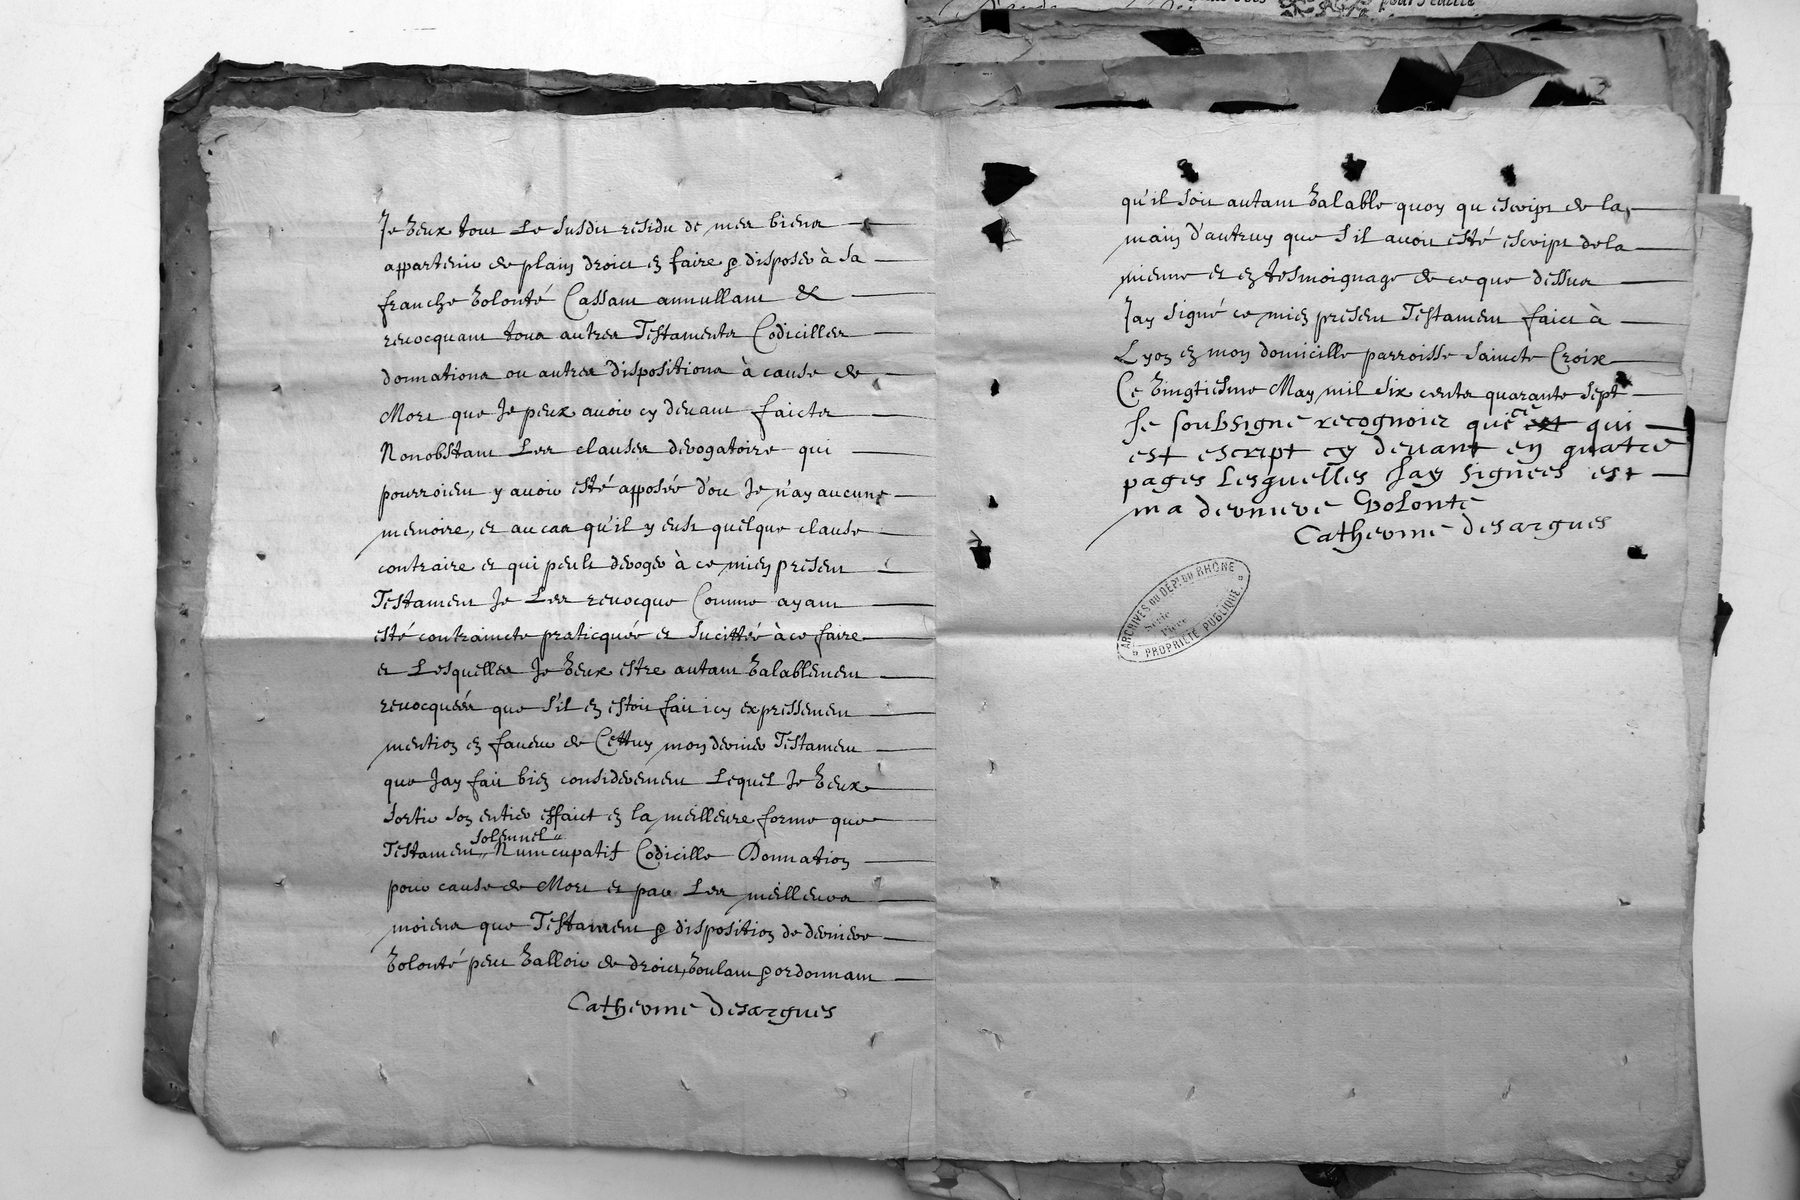 Je veux tout Le susdit residu de mes biens
appartenir de plain droict et faire & disposer à sa
franche volonté Cassant annullant &
revocquant tous autres Testaments Codicilles
donnations ou autres dispositions à cause de
Mort que Je peux avoir cy devant faictes
Nonobstant Les clauses derogatoire qui
pourroient y avoir esté apposée d'ou Je n'ay aucune
memoire, et au cas qu'il y eust quelque clause
contraire et qui peult deroger à ce mien present
Testament Je Les revocque Comme ayant
esté contraincte practiquée et sucittée à ce faire
et Lesquelles Je veux estre autant valablement
revocquées que s'il en estoit fait icy expressement
mention en faveur de Cettuy mon dernier Testament
que Jay fait bien considerement Lequel Je veux
sortir son entier effaict en la meilleure forme que
solemnel
Testament Nuncupatif Codicille Donnation
pour cause de Mort et par Les meilleurs
moiens que Testament & disposition de derniere
volonté peut valloir de droict, voulant & ordonnant
Catherine desargues
qu'il soit autant valable quoy qu'escript de la
main d'autruy que s'il avoit esté escript de la
mienne et en tesmoignage de ce que dessus
Jay signé ce mien present Testament faict à
Lyon en mon domicille parroisse saincte Croix
Ce vingtiesme May mil six cents quarante sept
Je soubsigne recognois que ce est qui
est escript cy devant en quatre
pages Lesquelles Jay signees est
ma derniere volonte
Catherine desargues
ARCHIVES DU DÉPT DU RHÔNE
Série
Pièce
PROPRIÉTÉ PUBLIQUE